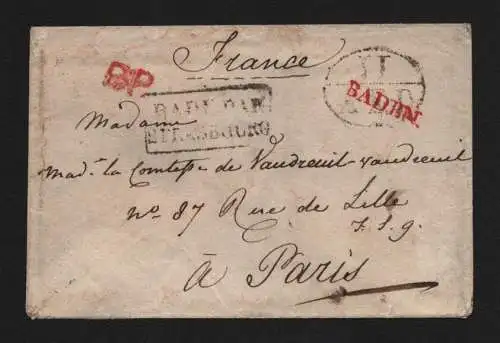 France
PP
BADE PAR
STRASBOURG
BADEN
Madame
Mad.e la Comtesse de Vaudreuil-vaudreuil
n.o 87 Rue de Lille
f. s. g.
à Paris